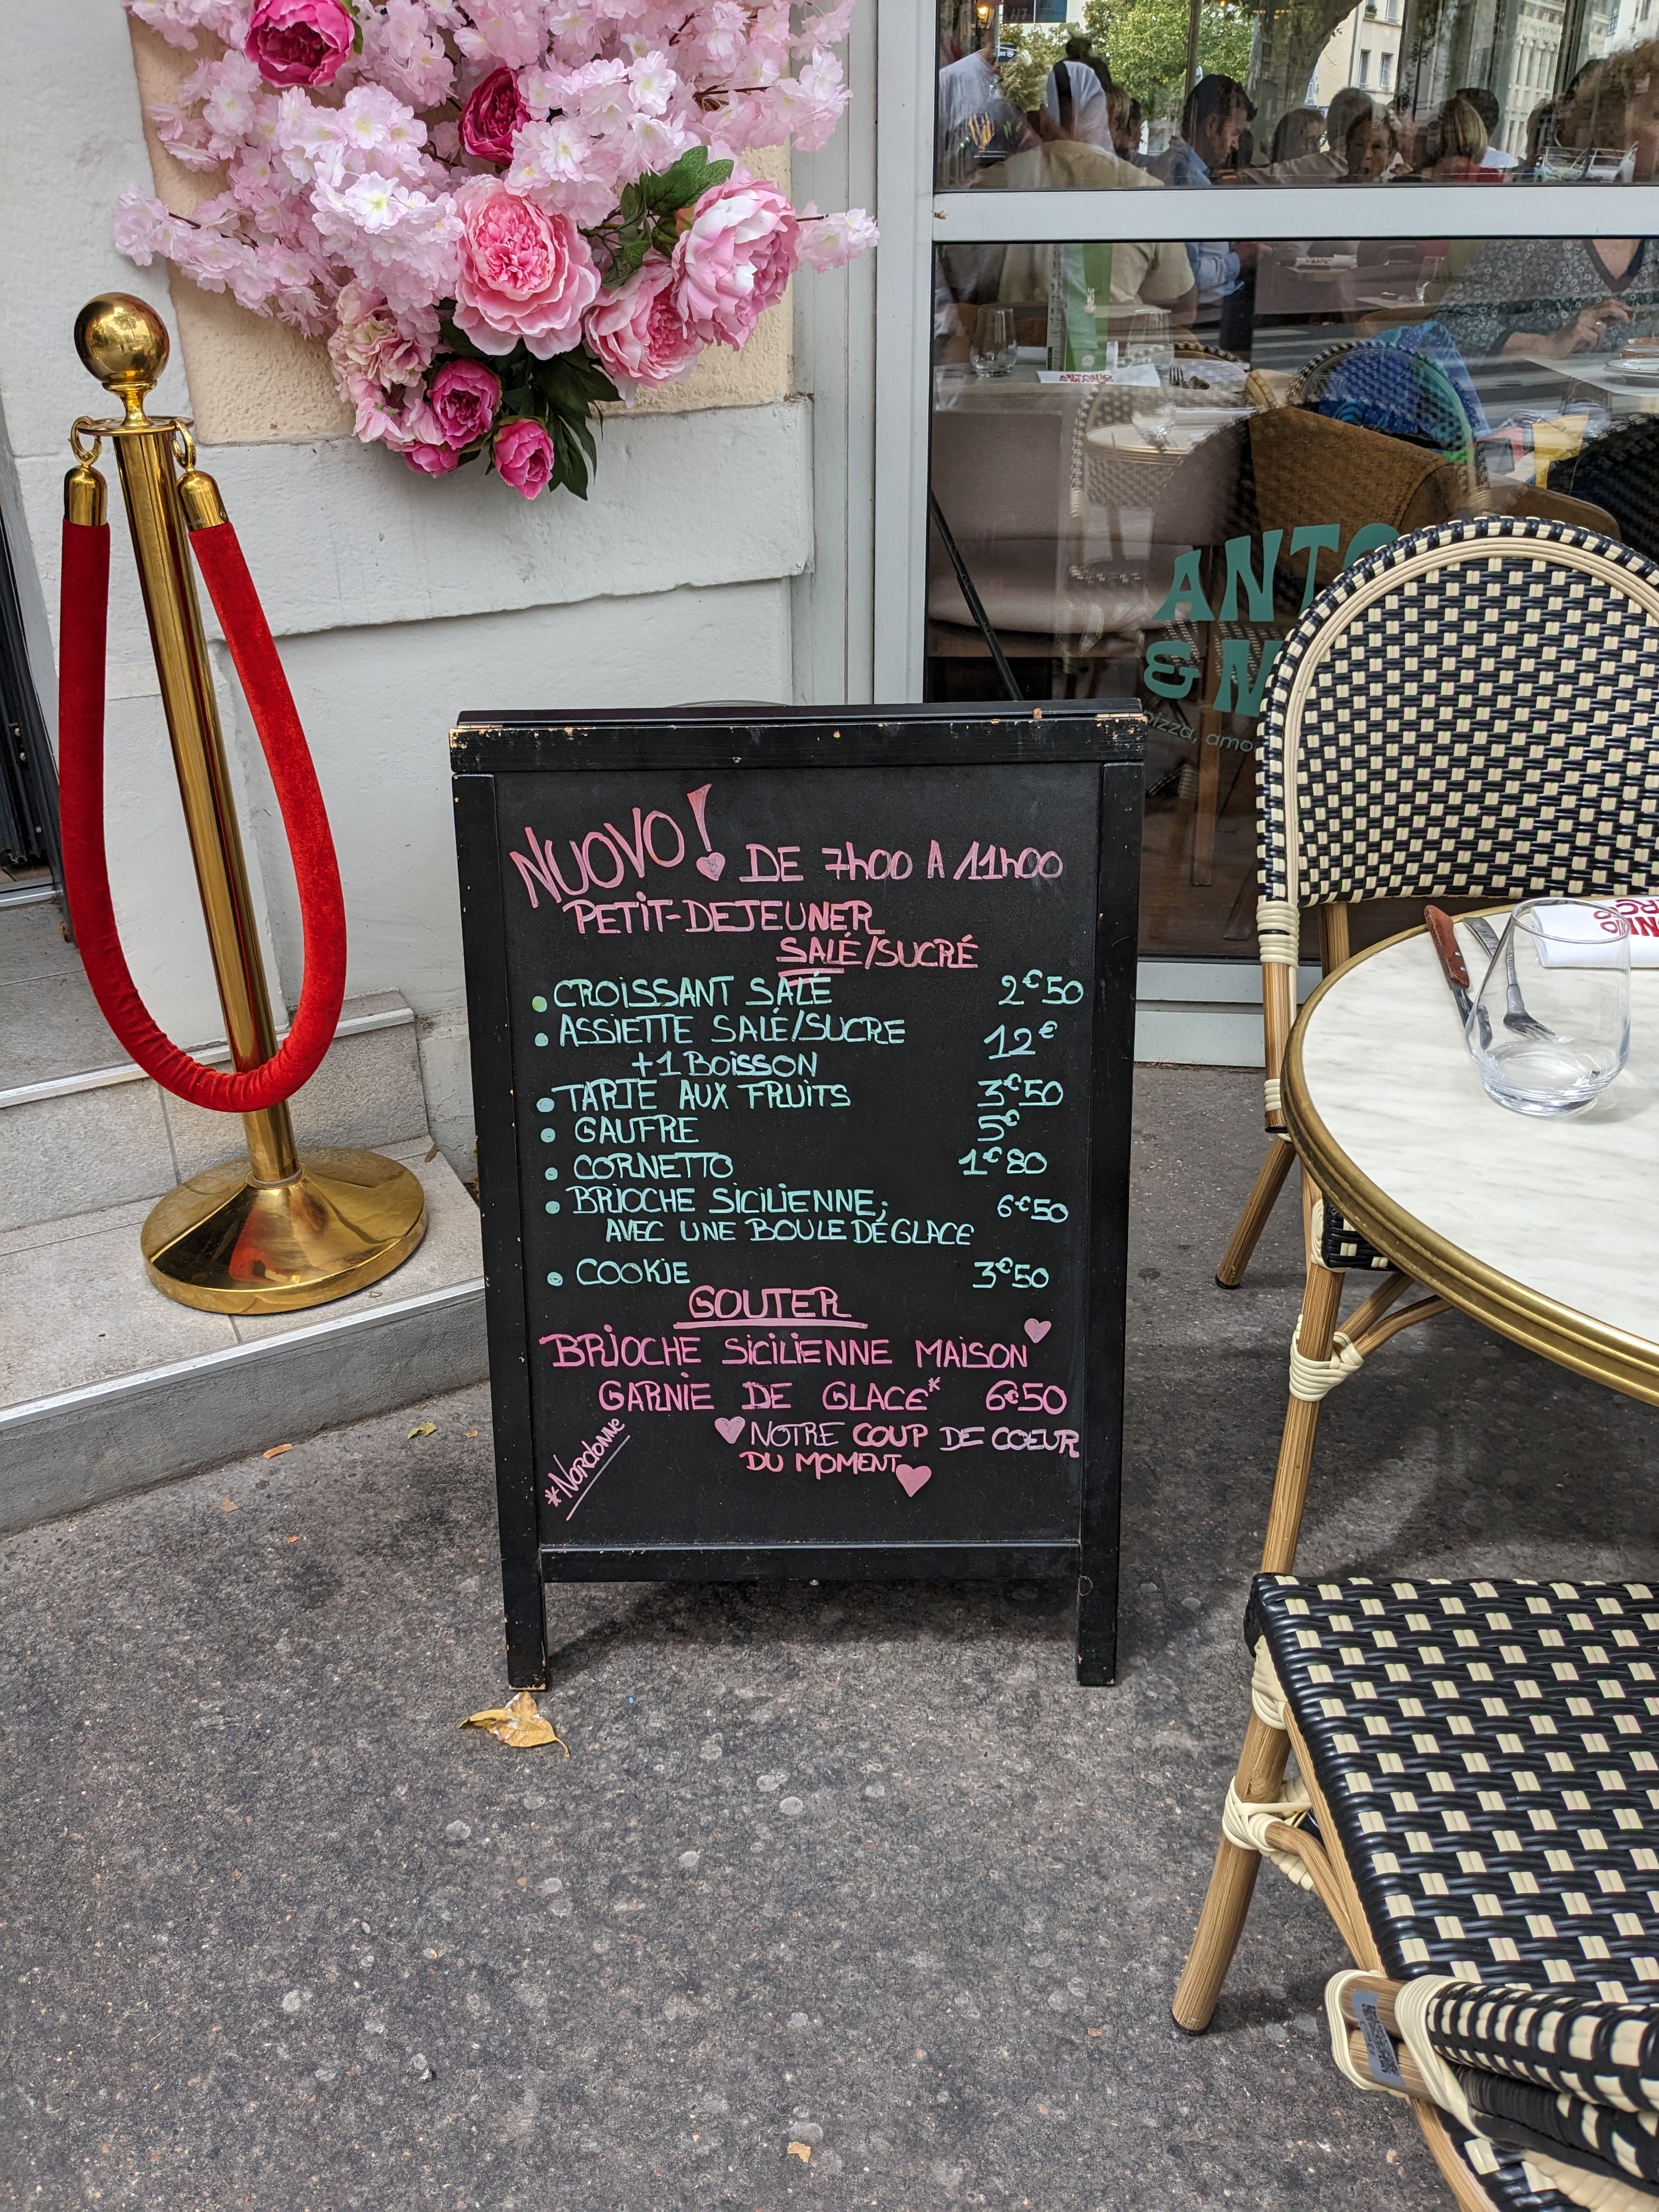 NUOVO! DE 7h00 A 11h00
PETIT-DEJEUNER
SALÉ/SUCRÉ
• CROISSANT SALÉ 2€50
• ASSIETTE SALÉ/SUCRE 12€
+1 BOISSON
• TARTE AUX FRUITS 3€50
• GAUFRE 5€
• CORNETTO 1€80
• BRIOCHE SICILIENNE; 6€50
AVEC UNE BOULE DE GLACE
• COOKIE 3€50
GOUTER
BRIOCHE SICILIENNE MAISON
GARNIE DE GLACE* 6€50
NOTRE COUP DE COEUR
DU MOMENT
*Nordonne
ANTO
& M
pizza, amo
ANTONIO